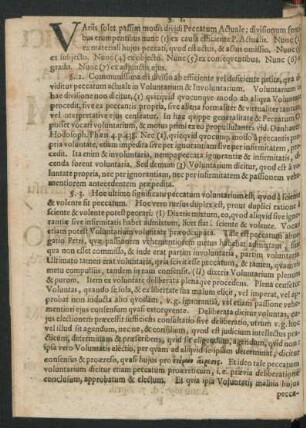 §. 1.
VAriis solet passim modis dividi Peccatum Actuale; divisionum
bus enim gentibus nunc (1) ex causâ efficiente P. Actualis. Nunc (2)
ex materiali hujus peccati, quod est actus, & actus omissio. Nunc (3)
ex subjecto. Nunc (4) ex objecto. Nunc (5) ex consequentibus. Nunc (6)
gradu. Nunc (7) ex adjunctis aliis.
§. 2. Communissima est divisio ab efficiente vel deficiente petita, quâ
viditur peccatum actuale in Voluntarium & Involuntarium. Voluntarium in
hac divisione non dicitur, (1) quicquid quocunque modo ab aliqua Voluntate
procedit, sive ea peccantis propria, sive aliqua formaliter & virtualiter peccan-
tis voluntas, etiam impediens sit censeatur. In hac quippe generalitate & Peccatum O-
riginis vocari potest voluntarium, & modus ex eo profluens vid. Danhauer.
Hodosoph. Phæn. 4. p. 315. Nec (2), quicquid quocunq; modo à peccantis propria
voluntate venit, sive ea imperfectâ sive per ignorantiam & infirmitatem, prove-
dit. Ita enim & involuntaria, nempe peccata ignorantiæ & infirmitatis, di-
cenda forent voluntaria. Sed demum (3) Voluntarium dicitur, quod est à vo-
luntate propria, nec per ignorantiam, nec per infirmitatem & passionem vehe-
mentiorem antecedentem præpedita.
§. 3. Hoc ultimo significatu peccatum voluntarium est, quod à sciente
& volente fit peccatum. Hoc vero rursus duplex est, prout duplici ratione
sciente & volente potest peccari: (1) Dixeris mixtum, eo, quod aliquid sive igno-
rantiæ sive infirmitatis habet admixtum, licet fiat à sciente & volente. Vocare
etiam potest Voluntarium voluntate
gatio Petri, quæ passionem vehementiorem metus habebat admixtam,
partim infirmitatis, & inde erat partim involuntaria, partim voluntaria.
Ultimato tamen erat voluntaria, quia sciens & volens Christum negabat,
metu compulsus, tandem in eam consensit. (II) dixeris Voluntarium plenum
& purum. Item ex voluntate deliberata plena procedens. Plena censetur
Voluntas, quando sciens, & ex libertate ita malum elicit, vel imperat, vel ap-
probat non inducta aliò quodam, v. g. ignorantiâ, vel etiam passione vehe-
mentiori ejus consensum quasi extorquente. Deliberata dicitur voluntas, cu-
jus electionem præcessit sufficiens consultatio sive deliberatio, utrum v. g. hoc
vel illud sit agendum, necne, & consilium, quod est judicium intellectus pecca-
dictum, determinans & præscribens, quid sit eligendum, quid agendum.
pia vero Voluntatis electio, per quam ad aliquid ipsamet determinat, dicitur
consensus & proæresis, quasi hujus pro Et ideo tale peccatum
voluntarium dicitur etiam peccatum proæreticum, è deliberatione
conclusum, approbatum & electum. Et quia ipsa Voluntatis malitia hujus
pecca-